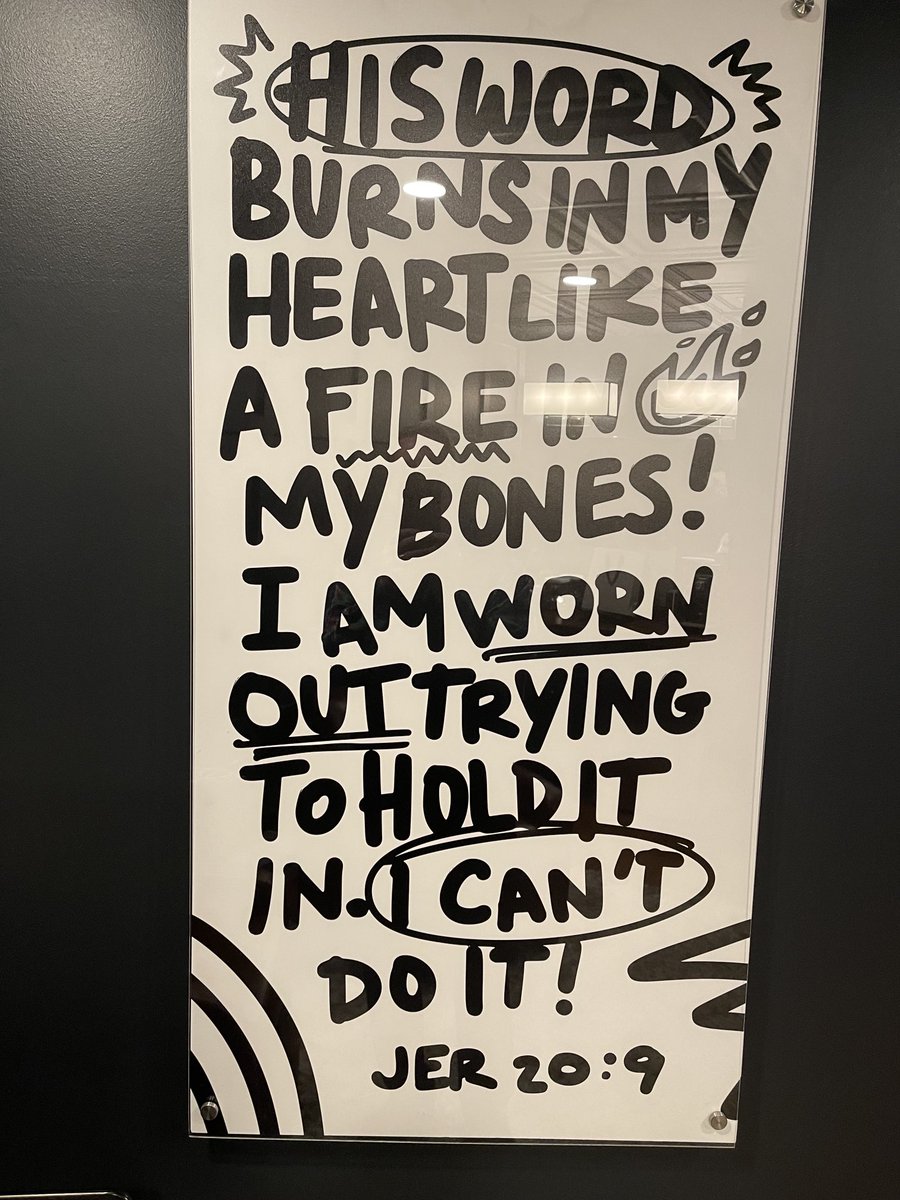 HIS WORD
BURNS IN MY
HEART LIKE
A FIRE IN
MY BONES!
I AM WORN
OUT TRYING
TO HOLD IT
IN. I CAN'T
DO IT!
JER 20:9